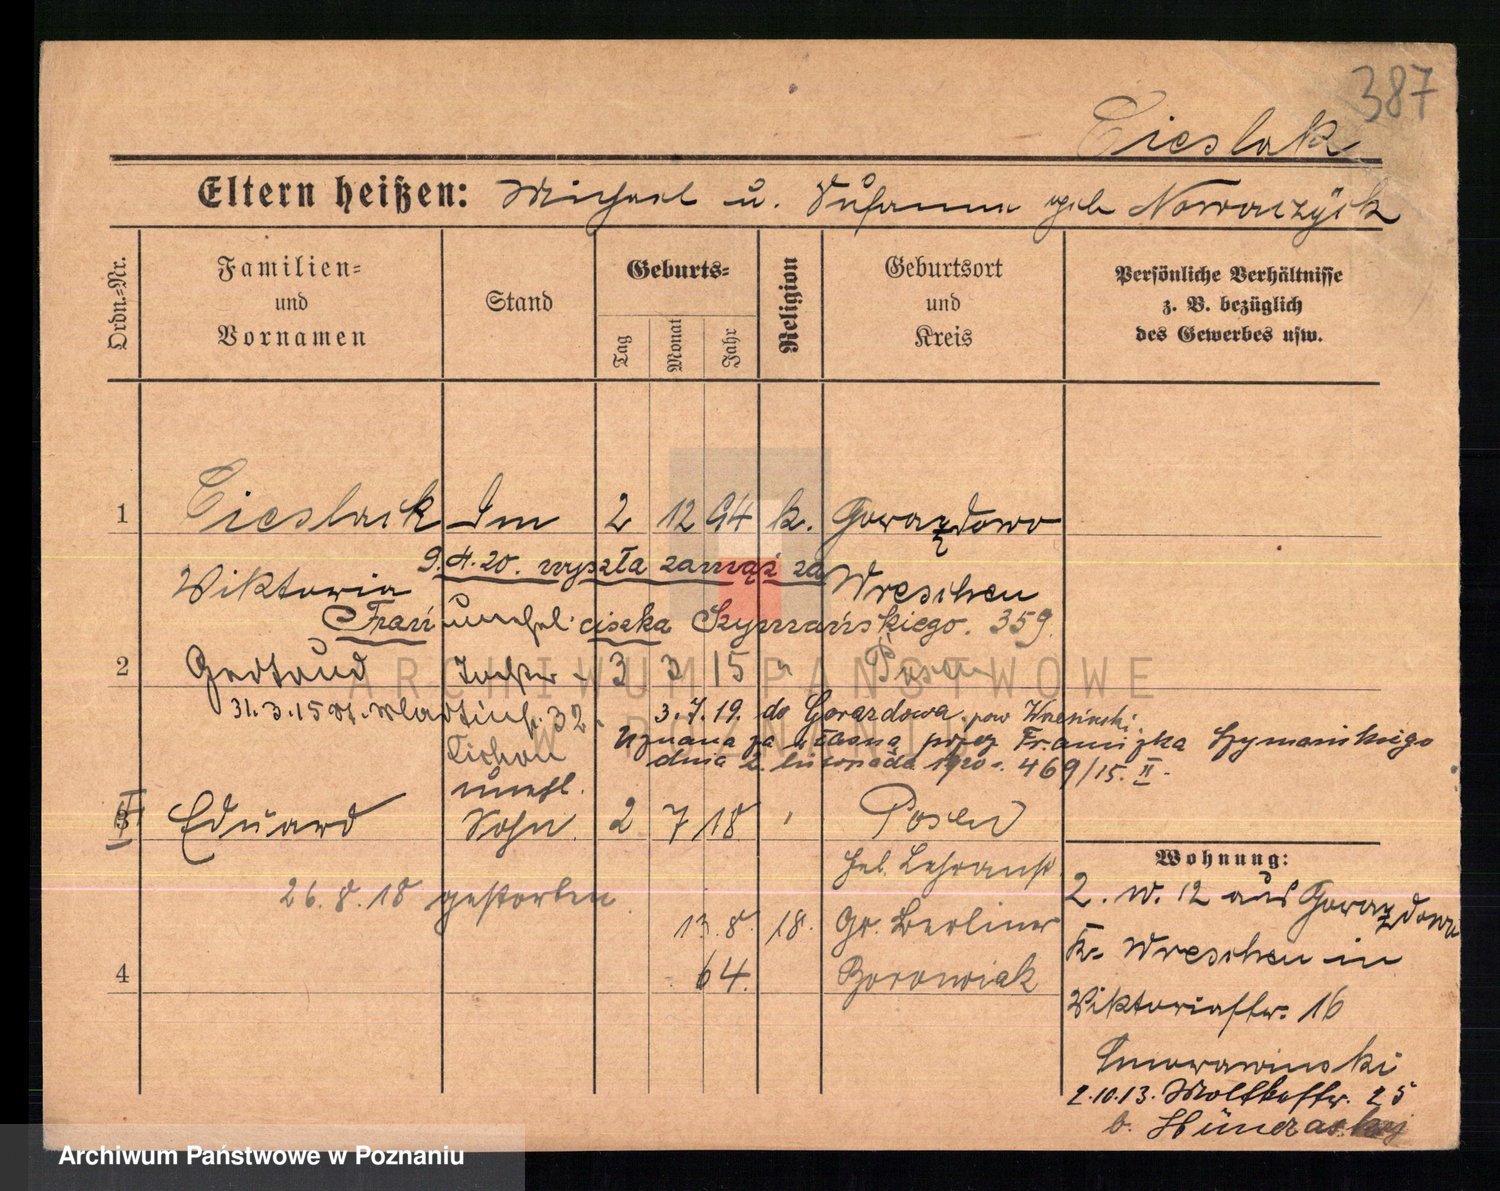 387
Cieslak
Eltern heißen: Michael u. Susanna geb Nowaczyk
Ordn.-Nr.
Familien- und Vornamen
Stand
Geburts-
Tag
Monat
Jahr
Religion
Geburtsort und Kreis
Persönliche Verhältnisse z. B. bezüglich des Gewerbes usw.
1 Cieslack 2 12 94 k. Gorazdowo
9.4.20. wyszła zamąż za
Wiktoria Wreschen
Franciszka Szymańskiego. 359.
unehel.
2 Gertrud Tochter 3 3 15 " Posen
31.3.15 32
3.7.19. do Gorazdowa pow Wrzesiński
Uznana za własną przez Franciszka Szymańskiego
dnia 2. listopada 1920 r. 469/15. II.
unehl.
3 Eduard Sohn 2 7 18 " Posen
Heb. Lehranst.
26.8.18 gestorben
13.8.18. Gr. Berliner
4 64. Borowiak
Wohnung:
2. 12 aus Gorazdowo
Kr. Wreschen in
Viktoriastr. 16
Smorawinski
2.10.13. Moltkestr. 25
b.
ARCHIWUM PAŃSTWOWE
W POZNANIU
Archiwum Państwowe w Poznaniu